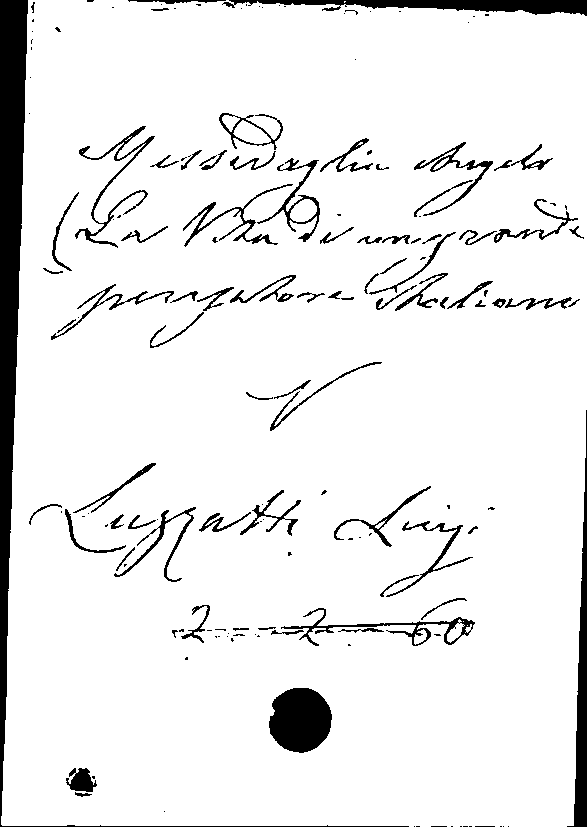 Messedaglia Angelo
(La Vita di un grande
pensatore italiano
V
Luzzatti Luigi
2. 2. 60